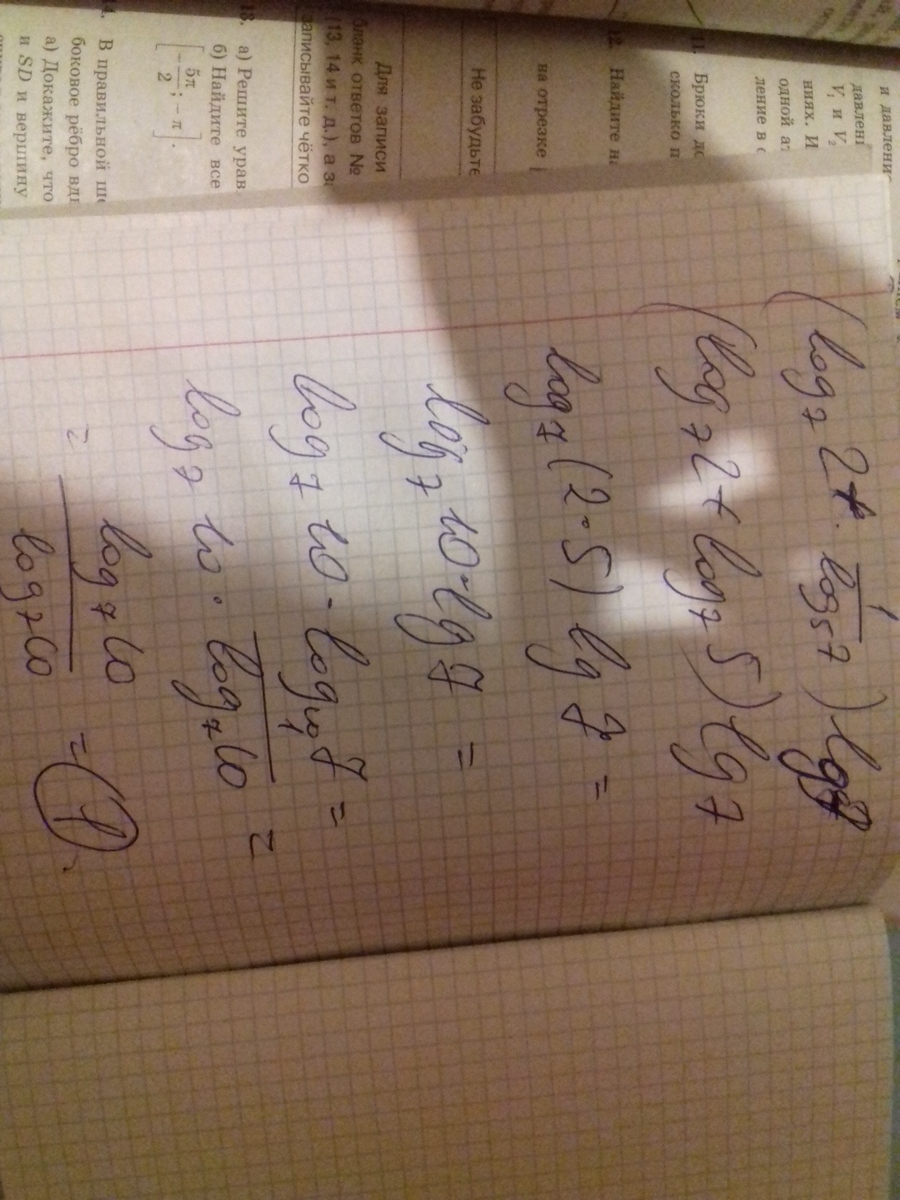 и давлени
давлени
V₁ и V₂
ниях. И
одной ат
ление в с
11. Брюки до
сколько п
12. Найдите н
на отрезке
Не забудьте
Для записи
бланк ответов №
(13, 14 и т. д.), а з
записывайте чётко
13. а) Решите урав
б) Найдите все
[−5π/2; −π].
14. В правильной ше
боковое ребро вд
а) Докажите, что
и SD и вершину
(log₇ 2 + · 1/log₅ 7) lg 7
(log₇ 2 + log₇ 5) lg 7
log₇ (2·5) lg 7 =
log₇ 10 · lg 7 =
log₇ 10 · log₁₀ 7 =
log₇ 10 · 1/log₇ 10 =
= log₇ 10/log₇ 10 = 1.